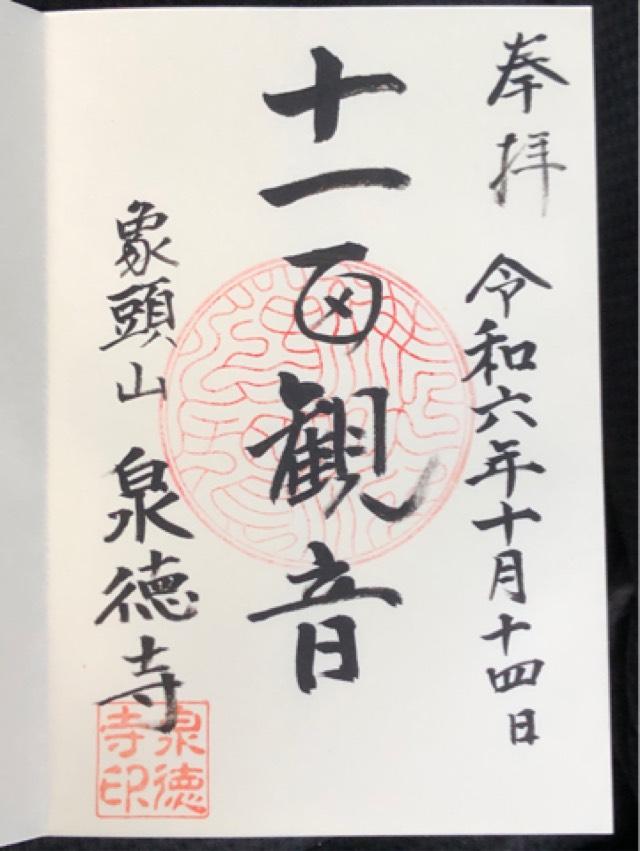 奉拝
令和六年十月十四日
十一面観音
象頭山 泉徳寺
泉徳
寺印